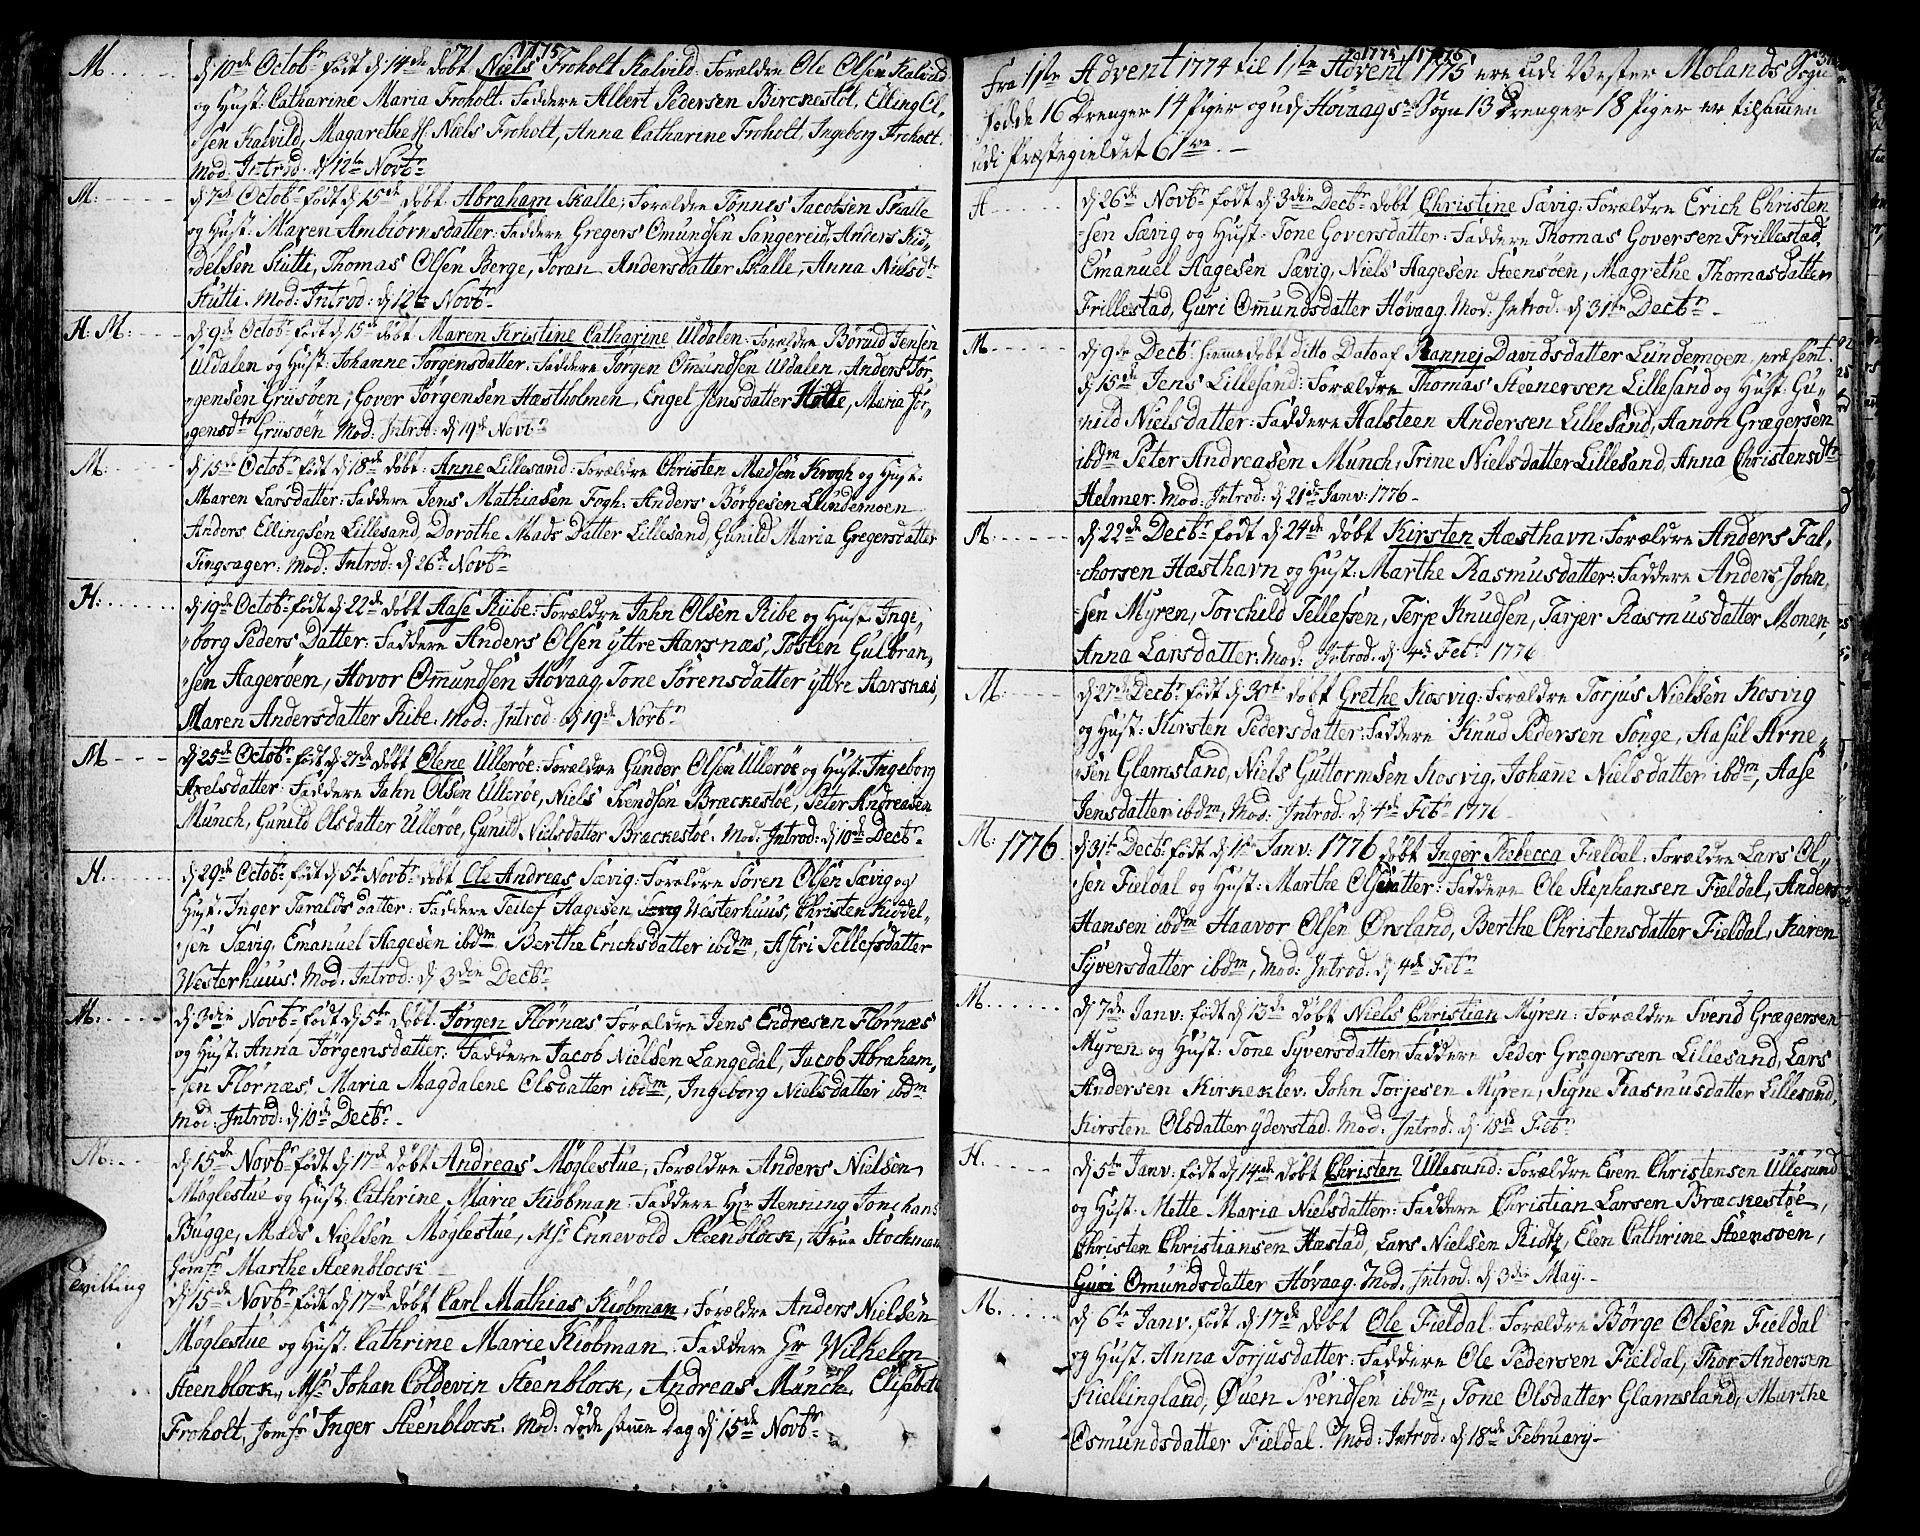 1775
M. d 10de Octobr født d 14de døbt Niels Froholt Kalvild: Forældre Ole Olsen Kalvild
og Hust: Catharine Maria Froholt: Faddere Albert Pedersen Birckestøl, Elling Ol-
sen Kalvild, Magarethe Niels Froholt, Anna Catharine Froholt, Ingeborg Froholt.
Mod. Introd. d 12te Novbr
M: d 7de Octobr født d 15de døbt Abraham Skalle; Forældre Tønnes Jacobsen Skalle
og Hust: Maren Ambiørnsdatter: Faddere Gregers Omundsen Sangereid, Anders Kid-
delsen Stutti, Thomas Olsen Berge, Joran Andersdatter Skalle, Anna Nielsdtr
Stutti. Mod: Introd: d 12te Novbr
H: M: d 9de Octobr født d 15de døbt Maren Kristine Catharine Uldalen: Forældre Børuld Jensen
Uldalen og Hust: Johanne Jørgensdatter: Faddere Jørgen Omundsen Uldalen, Anders Jør-
gensen Grusøen, Gover Jørgensen Hæstholmen, Engel Jensdatter Holte, Maria Jør-
gensdtr Grusøen Mod: Introd: d 19de Novbr
M: d 15de Octobr født d 18de døbt: Anne Lillesand: Forældre Christen Madsen Krogh og Hust:
Maren Larsdatter: Faddere Jens Mathiasen Fogh: Anders Børgesen Lundemoen
Anders Ellingsen Lillesand, Dorothe Mads Datter Lillesand, Gunild Maria Gregersdatter
Tingsager: Mod: Introd: d 26de Novbr
H: d 19de Octobr født d 22de døbt Aase Ribe: Forældre Jahn Olsen Ribe og Hust Inge-
borg Peders Datter: Faddere Anders Olsen yttre Aarsnæs, Tosten Gulbran-
sen Aagerøen, Hovor Omundsen Høvaag, Tone Sørensdatter yttre Aarsnæs,
Maren Andersdatter Ribe. Mod: Introd: d 19de Novbr
M d 25de Octobr født d 27de døbt Olene Ullerøe: Forældre Gundor Olsen Ullerøe og Hust: Ingeborg
Axelsdatter: Faddere Jahn Olsen Ullerøe, Niels Svendsen Bræckestøe, Peter Andreasen
Munch, Gunild Olsdatter Ullerøe, Gunild Nielsdatter Brackestøe. Mod: Introd: d 10de Decbr
H. d 29de Octobr født d 5te Novbr døbt Ole Andreas Sævig: Forældre Søren Olsen Sævig og
Hust: Inger Taralds datter: Faddere Tellef Aagesen Westerhuus, Christen Kiddel-
sen Sævig, Emanuel Aagesen ibdm, Berthe Erichsdatter ibdm, Astri Tellefsdatter
Westerhuus: Mod. Introd: d 3die Decbr
M: d 3die Novbr født d 5te døbt. Jørgen Flørnæs Forældre Jens Endresen Flørnæs
og Hust: Anna Jørgensdatter: Faddere Jacob Nielsen Langedal, Jacob Abraham-
sen Flørnæs, Maria Magdalene Olsdatter ibdm, Ingeborg Nielsdatter ibdm
Mod: Introd: d 10de Decbr.
M: d 15de Novbr født d 17de døbt Andreas Møglestue, Forældre Anders Nielsen
Møglestue og Hust: Cathrine Marie Kiøbman: Faddere Hr Henning Jonchans
Bugge, Mads Nielsen Møglestue, Msr Ennevold Steenblock, Frue Stockman
Jomfr Marthe Steenblock
Tvilling d 15de Novbr født d 17de døbt Carl Mathias Kiøbman, Forældre Anders Nielsen
Møglestue og Hust: Cathrine Marie Kiøbman. Faddere Hr Wilhelm
Steenblock, Msr Johan Coldevin Steenblock, Andreas Munck, Elisabeth
Froholt, Jomfr Inger Steenblock. Mod: døde samme dag d 15de Novbr
1775 1776
Fra 1ste Advent 1774 til 1ste Advent 1775 ere udi Vester Molands Sogn
fødde 16 Drenger 14 Piger og udi Høvaags Sogn 13 Drenger 18 Piger er tilsamen
udi Præstegieldet 61ve.
H d 26de Novbr født d 3die Decbr døbt Christine Sævig: Forældre Erich Christen
sen Sævig og Hust: Tone Goversdatter: Faddere Thomas Goversen Frillestad,
Emanuel Aagesen Sævig, Niels Aagesen Steensøen, Magrethe Thomasdatter
Frillestad, Guri Omundsdatter Høvaag. Mod: Introd. d 31te Decbr
M. d 9de Decbr hiemme døbt ditto Dato af Rannej Davidsdatter Lundemoen, præsent.
d 15de Jens Lillesand: Forældre Thomas Steenersen Lillesand og Hust: Gu-
nild Nielsdatter: Faddere Halsteen Andersen Lillesand, Aanon Grægersen
ibdm Peter Andreasen Munch, Trine Nielsdatter Lillesand, Anna Christensdtr
Helmer. Mod: Introd: d 21de Janv: 1776
M. d 22de Decbr født d 24de døbt Kirsten Hæsthavn: Forældre Anders Fal-
chorsen Hæsthavn og Hust: Marthe Rasmusdatter: Faddere Anders John-
sen Myren, Torchild Tellefsen, Terje Knudsen, Tarjer Rasmusdatter Monen,
Anna Larsdatter. Mod: Introd. d 4de Febr 1776
M d 27de Decbr født d 30te døbt Grethe Kosvig: Forældre Torjus Nielsen Kosvig
og Hust: Kirsten Pedersdatter: Faddere Knud Pedersen Songe, Aasul Arne-
sen Glamsland, Niels Guttormsen Kosvig, Johanne Nielsdatter ibdm, Aase
Jensdatter ibdm, Mod: Introd. d 4de Febr 1776
M: 1776 d 31te Decbr født d 1ste Janv: 1776 døbt Inger Rebecca Fieldal: Forældre Lars Ol-
sen Fieldal og Hust: Marthe Olsdatter: Faddere Ole Stephansen Fieldal, Anders
Hansen ibdm Haavor Olsen Ørsland, Berthe Christensdatter Fieldal, Karen
Syversdatter ibdm, Mod: Introd. d 4de Febr
M. d 7de Janv: født d 13de døbt Niels Christian Myren: Forældre Svend Grægersen
Myren og Hust: Tone Syversdatter Faddere Peder Grægersen Lillesand, Lars
Andersen Kirkeklev. John Torjesen Myren, Signe Rasmusdatter Lillesand,
Kirsten Olsdatter yderstad. Mod: Introd. d 18de Febr
H. d 5te Janv: født d 14de døbt Christen Ullesund: Forældre Even Christensen Ullesund
og Hust: Mette Maria Nielsdatter: Faddere Christian Larsen Brackestøe,
Christen Christiansen Hæstad, Lars Nielsen Ridtz, Elen Cathrine Steensøen,
Guri Omundsdatter Høvaag. Mod. Introd. d 3die May
M. d 6te Janv. født d 17de døbt Ole Fieldal. Forældre Børge Olsen Fieldal
og Hust. Anna Torjusdatter: Faddere Ole Pedersen Fieldal, Thor Andersen
Kiellingland, Øuen Svendsen ibdm, Tone Olsdatter Glamsland, Marthe
Osmundsdatter Fieldal. Mod: Introd: d 18de February